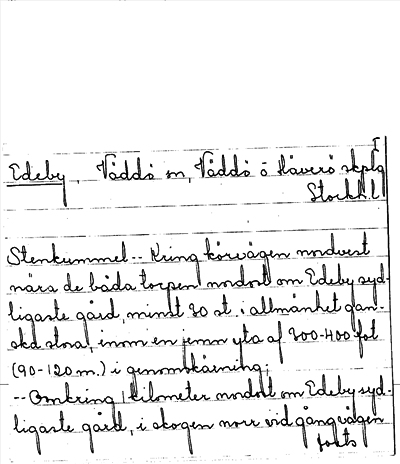 I
Edeby, Väddö sn, Väddö o Häverö skplg
Stockh.l
Stenkummel -- Kring körvägen nordvest
nära de båda torpen nordost om Edeby syd-
ligaste gård, minst 20 st. i allmänhet gan-
ska stora, inom en jemn yta af 300-400 fot
(90-120 m.) i genomskärning;
-- Omkring 1 kilometer nordost om Edeby syd-
ligaste gård, i skogen norr vid gångvägen
forts